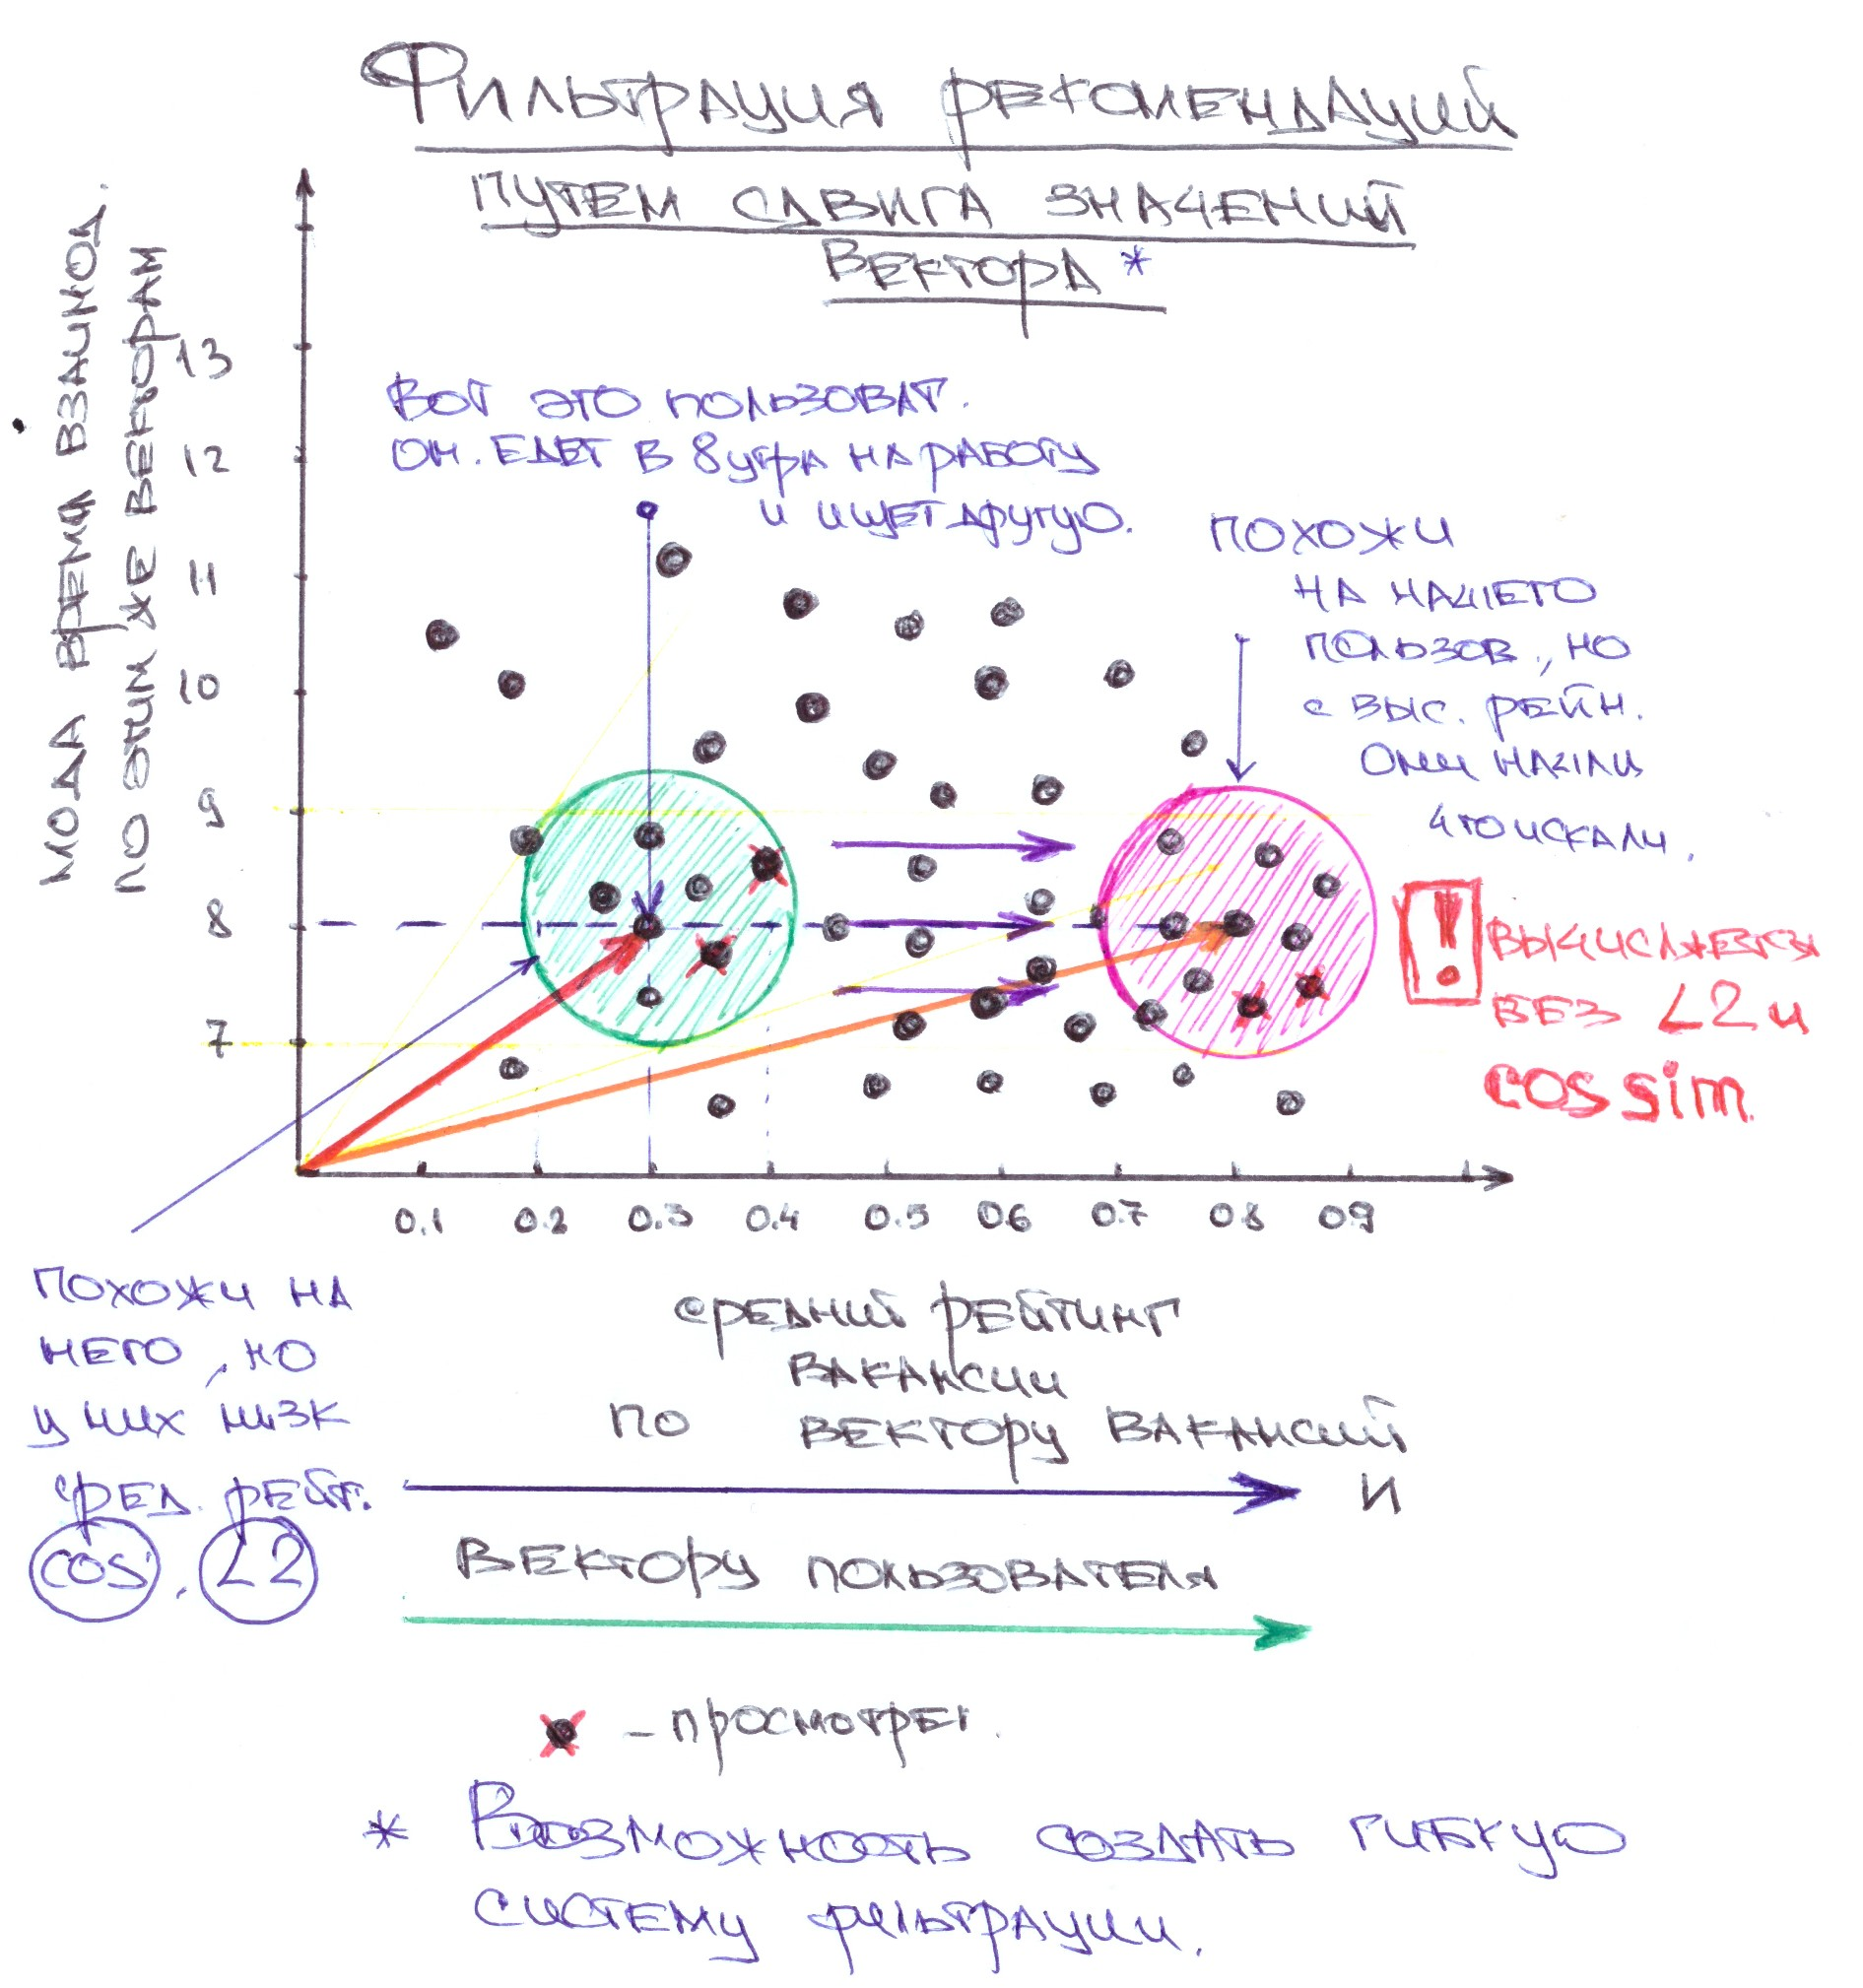 Фильтрация рекомендаций
путем сдвига значений
вектора *
мода время взаимод.
по этим же векторам
13
12
11
10
9
8
7
Вот это пользоват.
он. едет в 8 утра на работу
и ищет другую.
похожи
на нашего
пользов., но
с выс. рейн.
они нашли
что искали.
!
вычисляется
без L2 и
cos sim.
0.1 0.2 0.3 0.4 0.5 0.6 0.7 0.8 0.9
похожи на
него, но
у них низк
сред. рейт.
cos, L2
средний рейтинг
вакансии
по вектору вакансий
и
вектору пользователя
- просмотрен.
* Возможность создать гибкую
систему фильтрации.